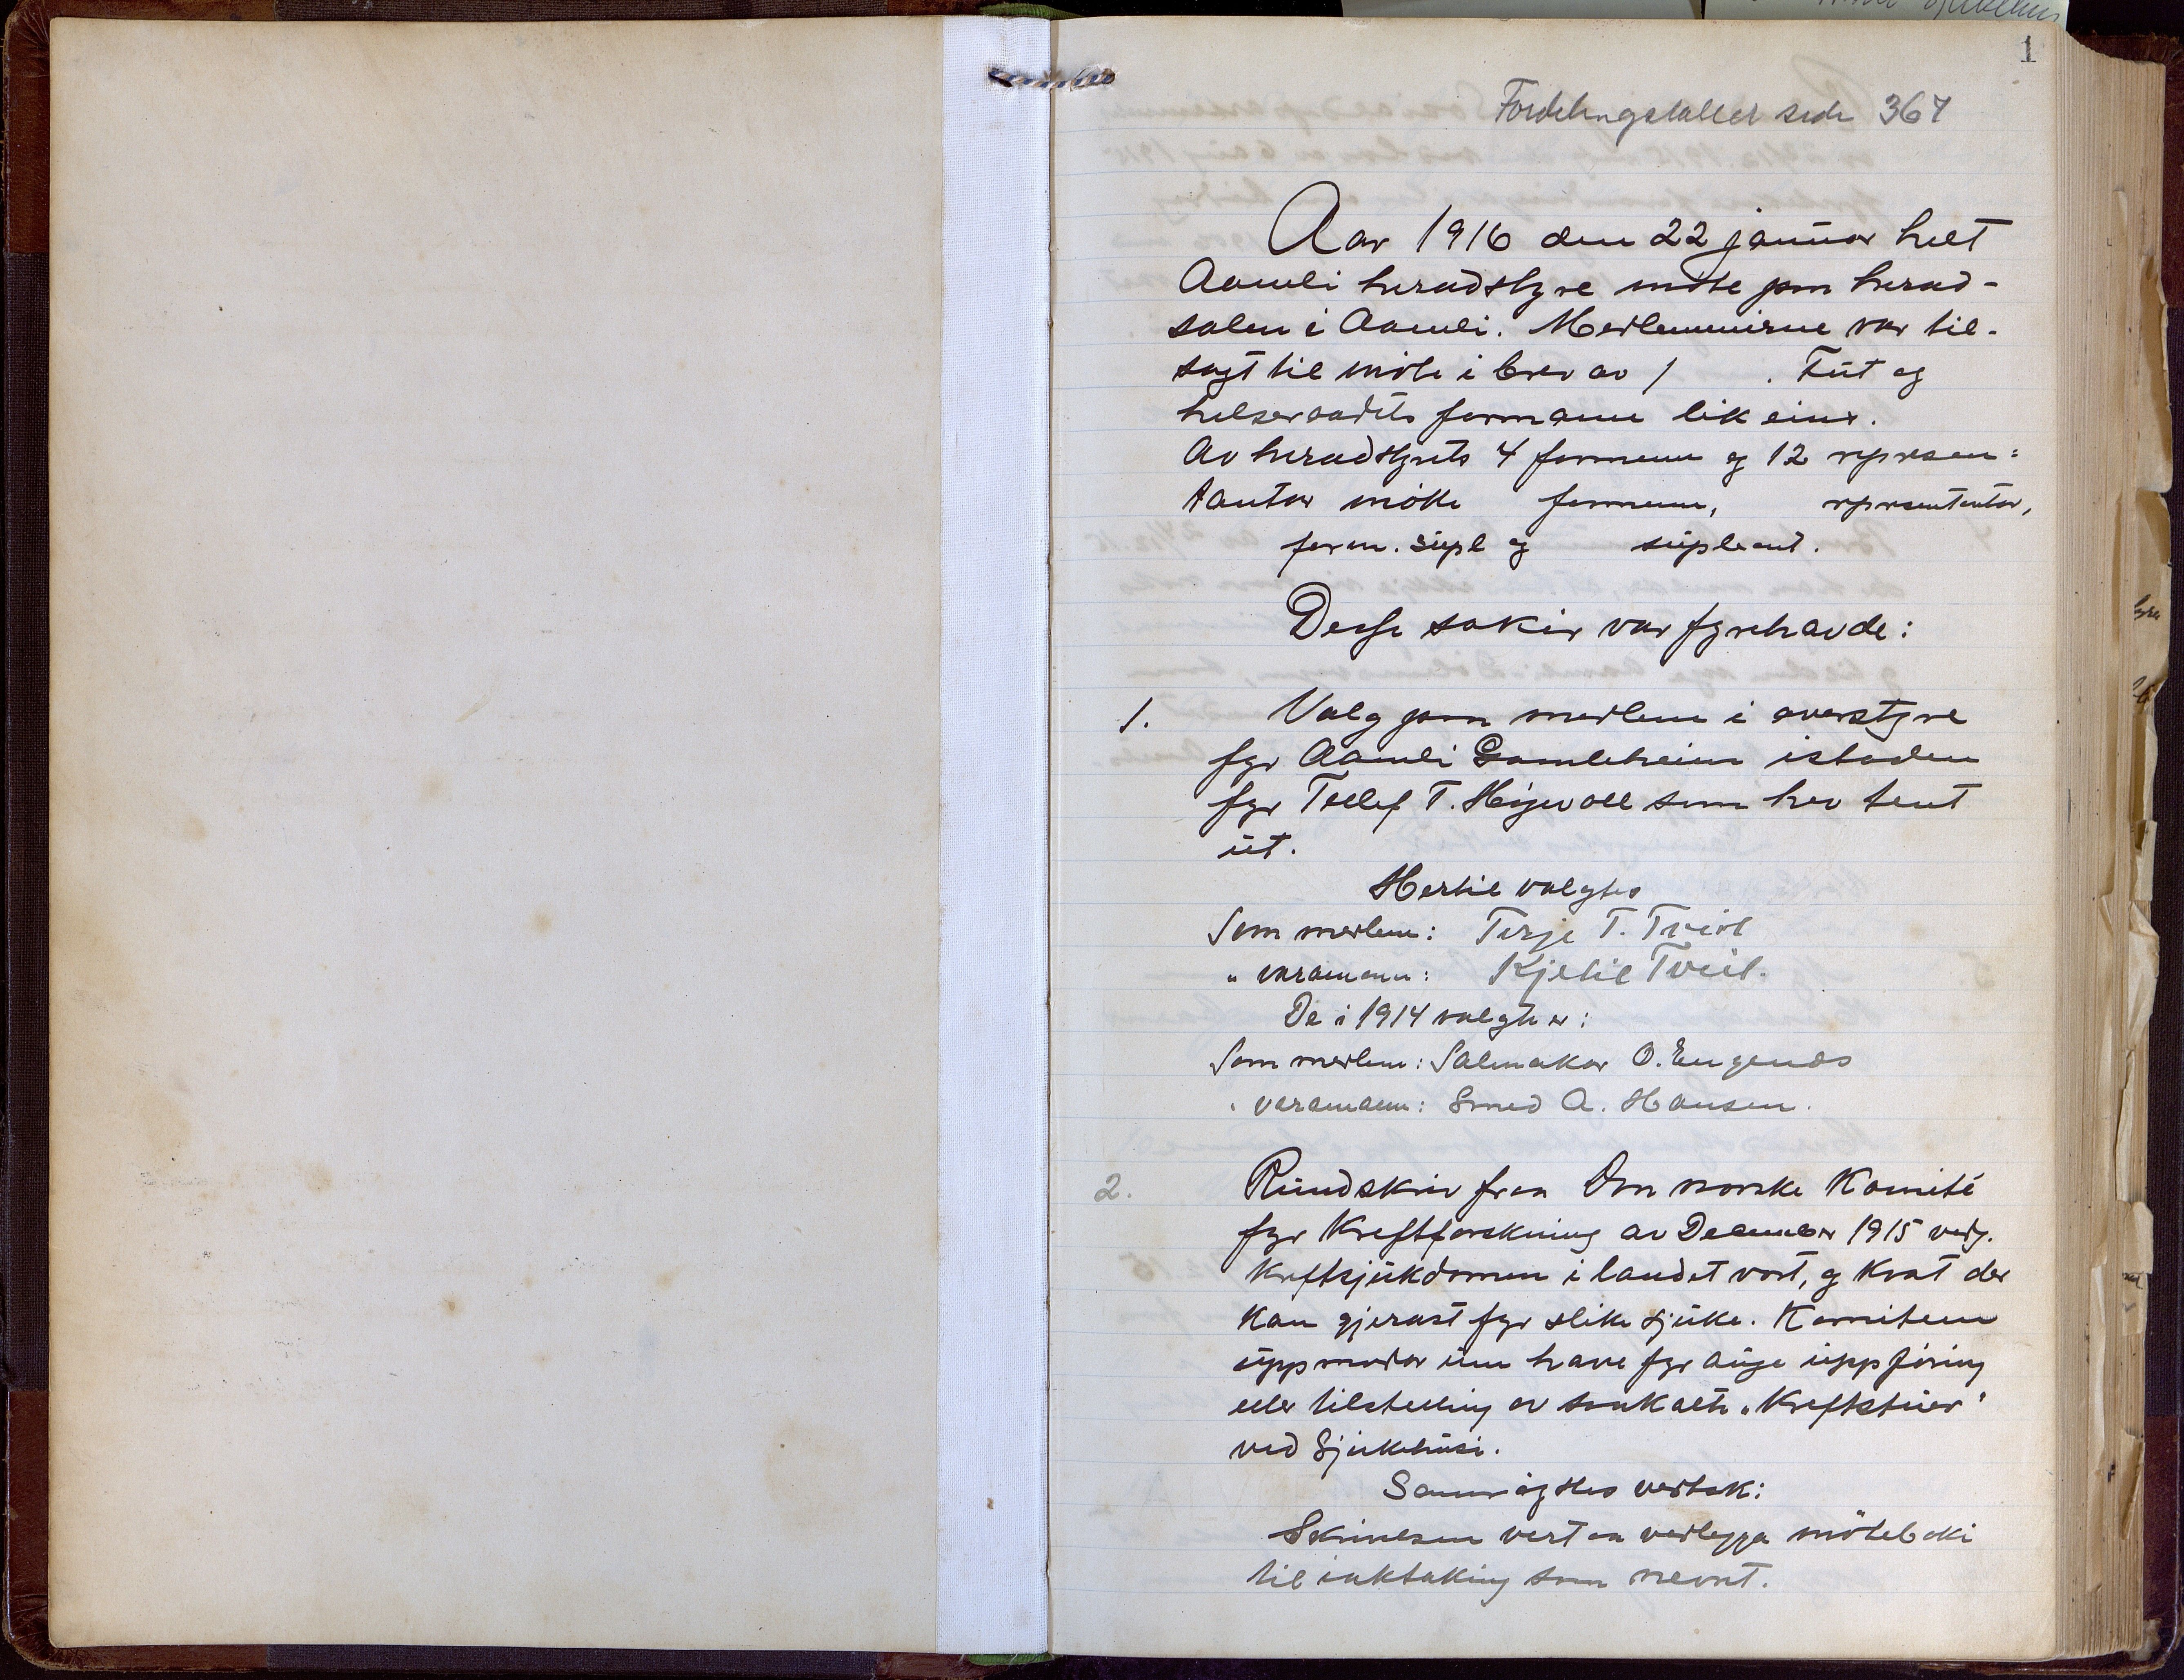 1
Fordelingstallet side 367
Aar 1916 den 22 januar helt
Aamli heradstyre møte paa herad-
salen i Aamli. Medlemmirne var til-
sagt til møte i brev av / . Fut og
helseraadets formann likeins.
Av heradstyrets 4 formenn og 12 represen=
tantar møtte formenn, representantar,
form. supl og supleant.
Desse sakir var fyrehavde:
1. Valg paa medlem i overstyre
fyr Aamli Gamleheim istaden
fyr Tellef T. Høgvoll som hev tent
ut.
Hertil valgtes
Som medlem: Terje T. Tveit
" varamann: Kjetil Tveit.
De i 1914 valgte er:
Som medlem: Salmakar O. Engenæs
" varamann: Smed A. Hansen.
2. Rundskriv fraa Den norske Komité
fyr Kreftforskning av December 1915 vedg.
Kreftsjukdomen i landet vort, og kvat der
kan gjerast fyr slike sjuke. Komiteen
uppmodar um have fyr auga uppføring
eller tilstelling av saakalte "Kreftstuer"
ved Sjukehusi.
Samrøystes vedtak:
Skrivelsen vert aa vedleggja møteboki
til iakttaking som nevnt.